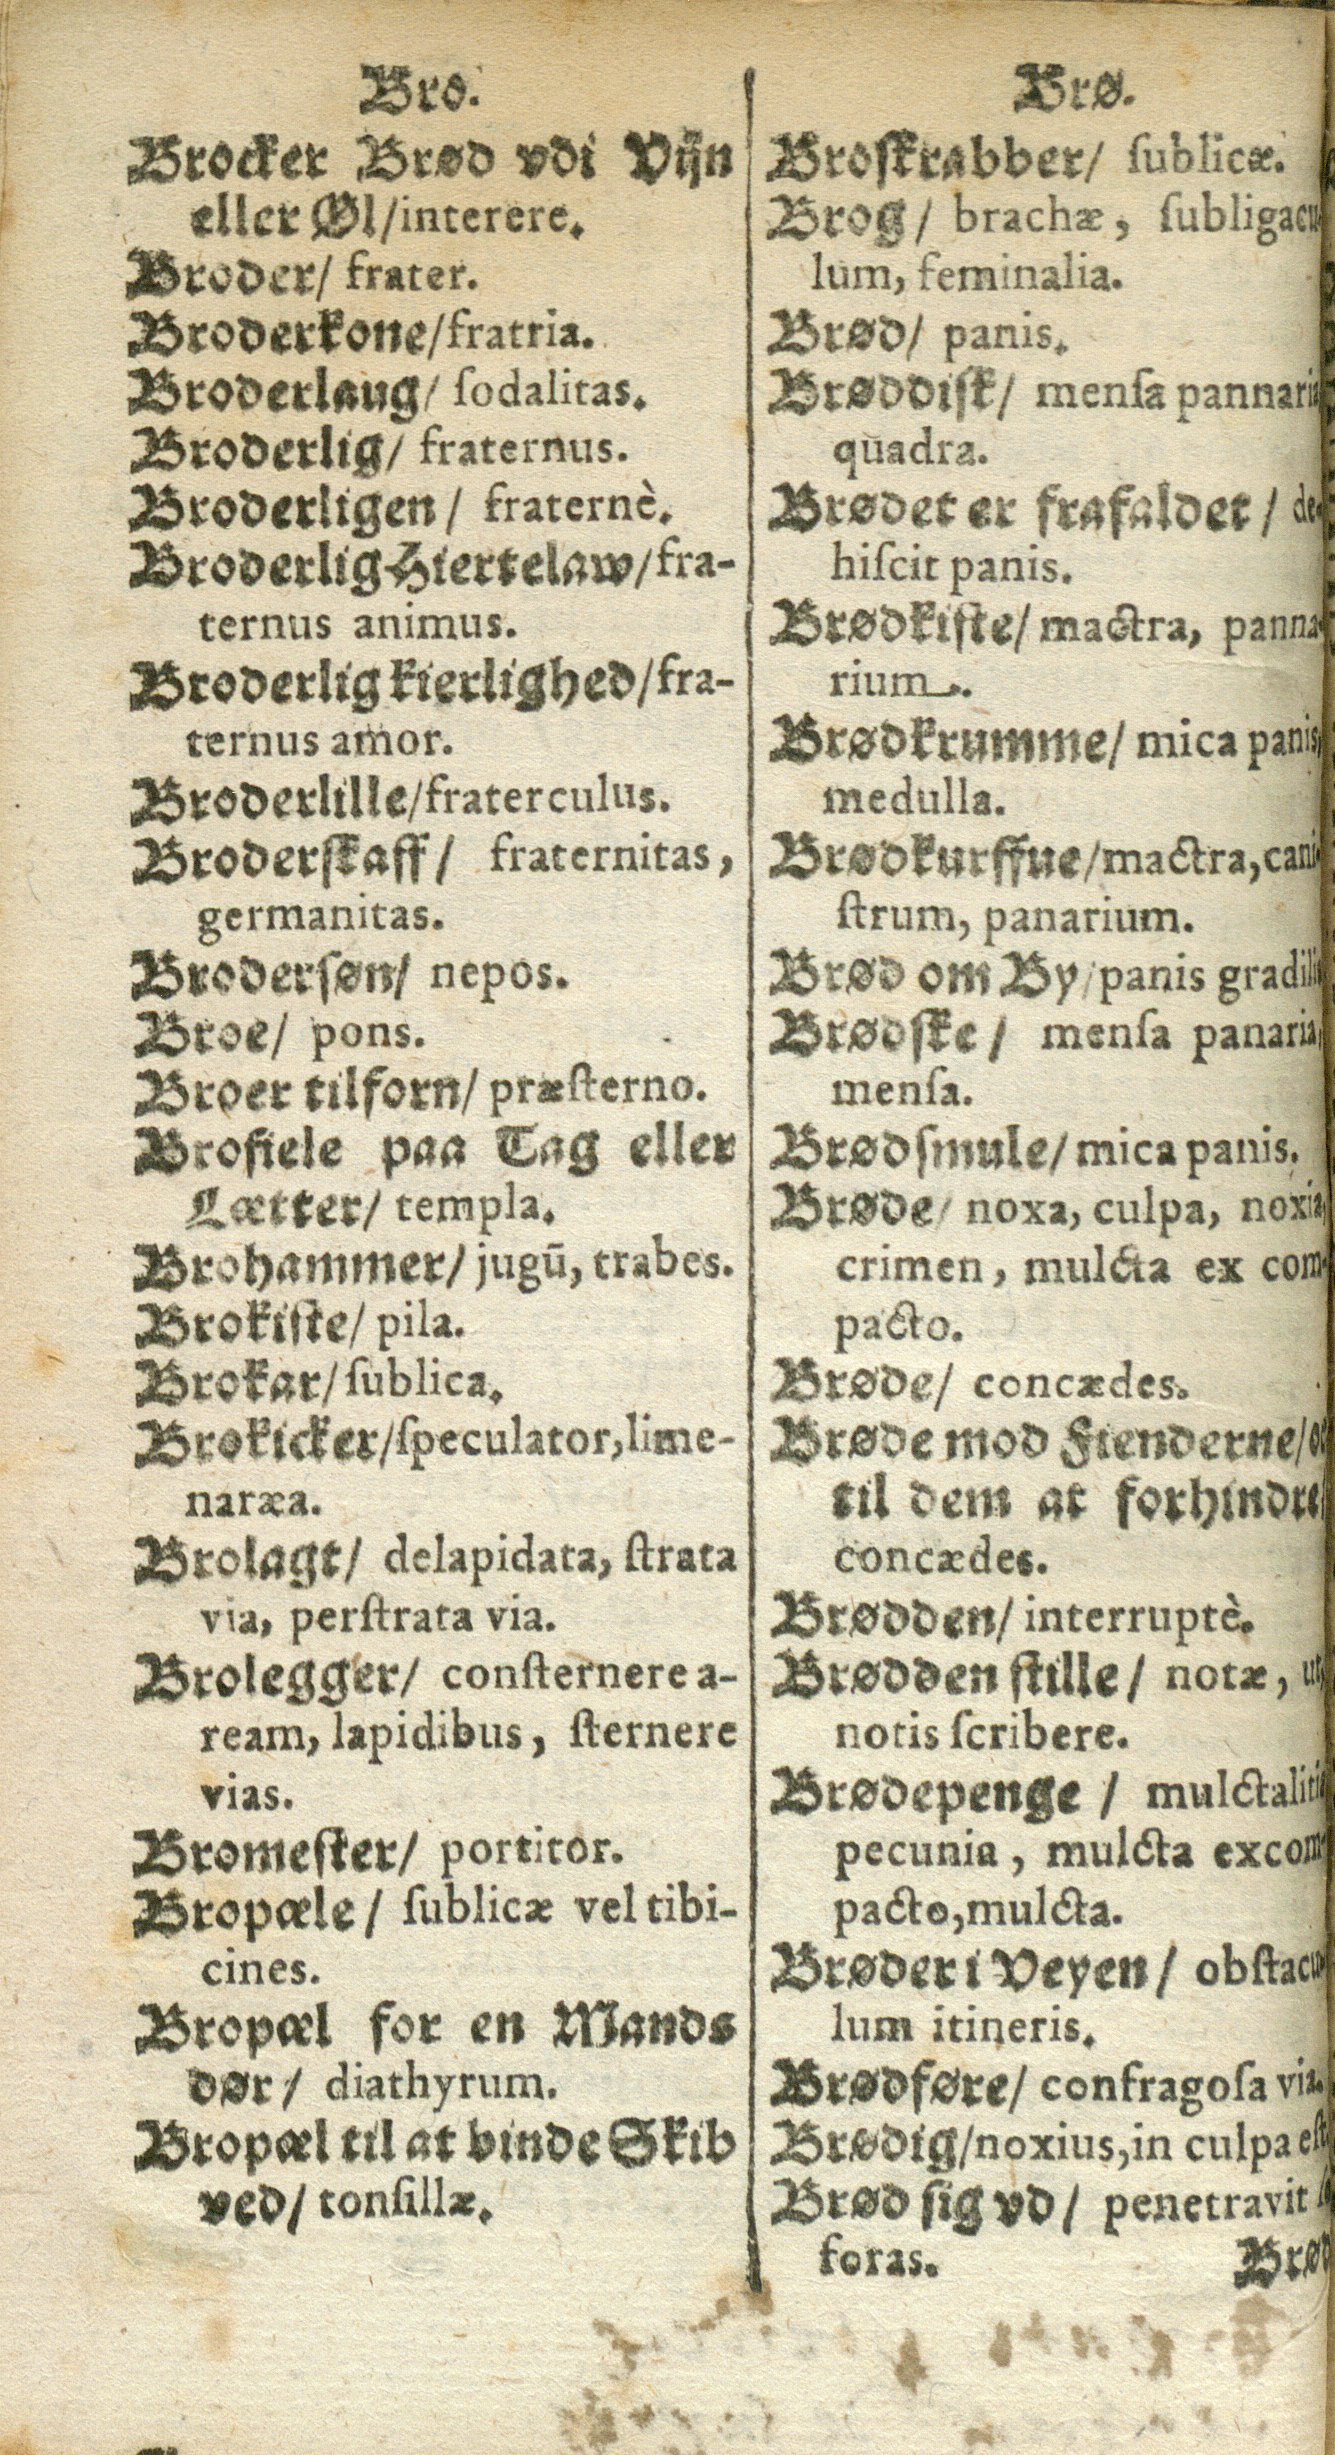 Bro.
Brocker Brød vdi Vijn
eller Øl/interere.
Broder/ frater.
Broderkone/fratria.
Broderlaug/ ſodalitas.
Broderlig/ fraternus.
Broderligen/ fraternè.
Broderlig Hiertelaw/fra-
ternus animus.
Broderlig kierlighed/fra-
ternus amor.
Broderlille/fraterculus.
Broderſkaff/ fraternitas,
germanitas.
Broderſøn/ nepos.
Broe/ pons.
Broer tilforn/ præſterno.
Brofiele paa Tag eller
Lætter/ templa.
Brohammer/ jugū, trabes.
Brokiſte/ pila.
Brokar/ ſublica.
Brokicker/ſpeculator,lime-
naræa.
Brolagt/ delapidata, ſtrata
via, perſtrata via.
Brolegger/ conſternere a-
ream, lapidibus, ſternere
vias.
Bromeſter/ portitor.
Bropæle/ ſublicæ vel tibi-
cines.
Bropæl for en Mands
dør/ diathyrum.
Bropæl til at binde Skib
ved/ tonſillæ.
Brø.
Broſkrabber/ ſublicæ.
Brog/ brachæ, ſubligacu-
lum, feminalia.
Brød/ panis.
Brøddiſk/ menſa pannaria
quadra.
Brødet er frafaldet/ de-
hiſcit panis.
Brødkiſte/ mactra, panna-
rium.
Brødkrumme/ mica panis,
medulla.
Brødkurffue/mactra,cani-
ſtrum, panarium.
Brød om By/panis gradilis
Brødſke/ menſa panaria,
menſa.
Brødſmule/ mica panis.
Brøde/ noxa, culpa, noxia,
crimen, mulcta ex com-
pacto.
Brøde/ concædes.
Brøde mod Fienderne/
til dem at forhindre,
concædes.
Brødden/ interruptè.
Brødden ſtille/ notæ, ut,
notis ſcribere.
Brødepenge/ mulctalitia
pecunia, mulcta excom-
pacto,mulcta.
Brøder i Veyen/ obſtacu-
lum itineris.
Brødføre/ confragoſa via.
Brødig/noxius,in culpa eſt
Brød ſig vd/ penetravit
foras.
Brød